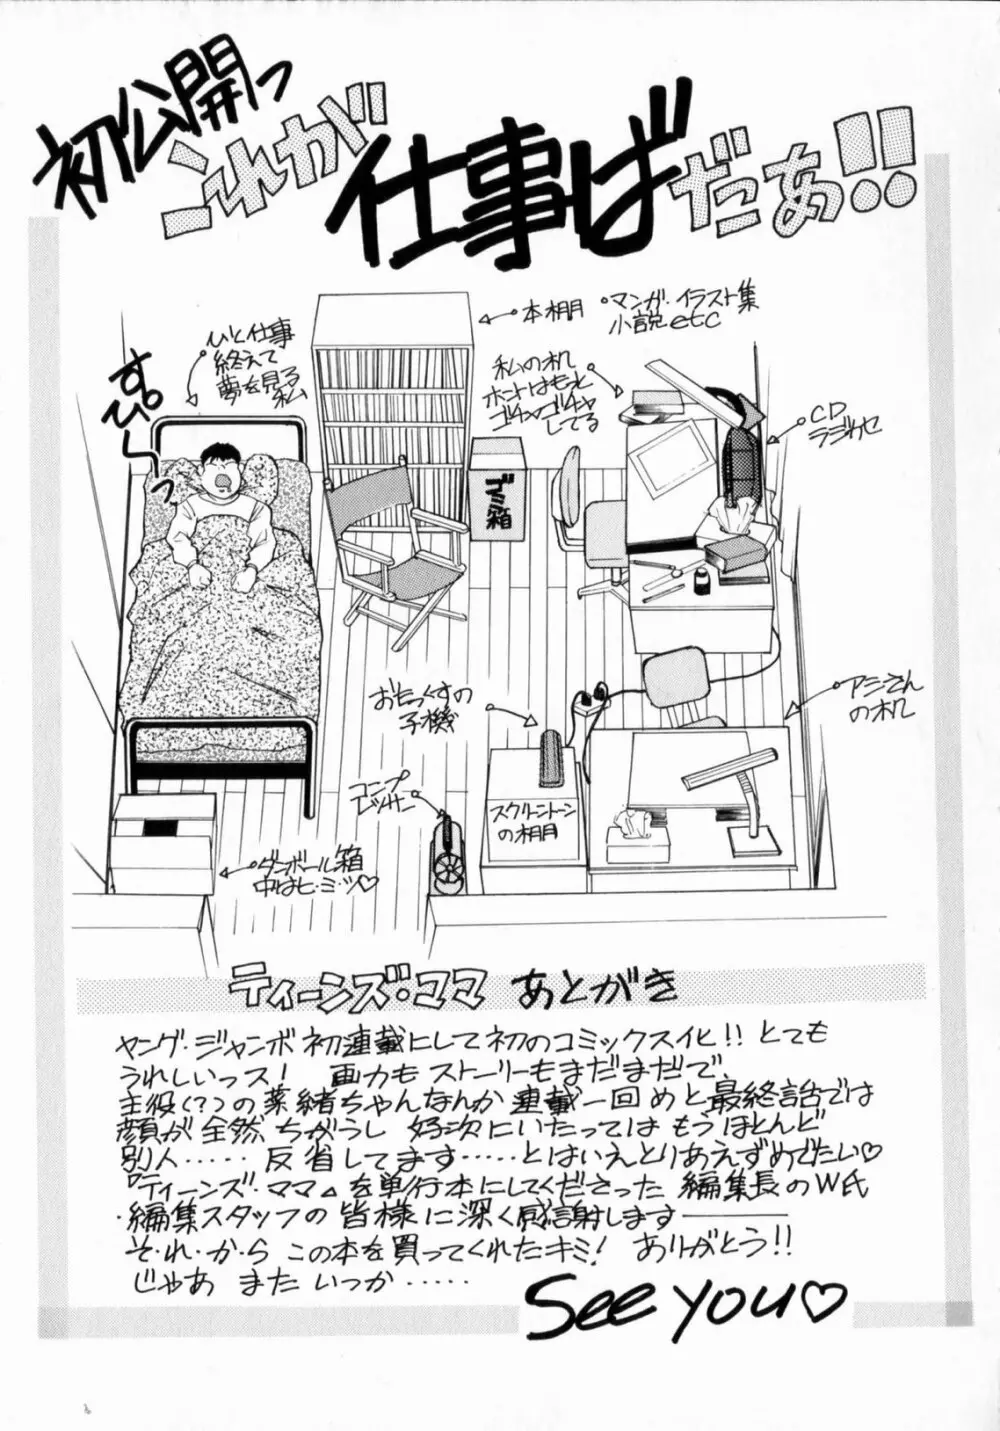 初公開っ
これが
仕事ばだあ!!
ひと仕事
終えて
夢を見る
私
本棚
・マンガ・イラスト集
小説etc
私の机
ホントはもっと
ゴチャゴチャ
してる
CD
ラジカセ
ゴミ箱
おもっくすの
子機
アシさん
の机
コンプ
レッサー
スクリーントーン
の棚
ダンボール箱
中はヒ・ミ・ツ♡
ティーンズ・ママ あとがき
ヤング・ジャンボ初連載にして初のコミックスイヒ!! とても
うれしいっス! 画力も ストーリーもまだまだで、
主役(?)の薬緒ちゃんなんか 連載一回めと最終話では
顔が全然ちがうし 好次にいたっては もうほとんど
別人…… 反省してます……とはいえとりあえずめでたい♡
『ティーンズ・ママ』を単行本にしてくださった 編集長のW氏
・編集スタッフの皆様に深く感謝します———
そ・れ・か・ら この本を買ってくれたキミ! ありがとう!!
じゃあ また いつか……
See you♡